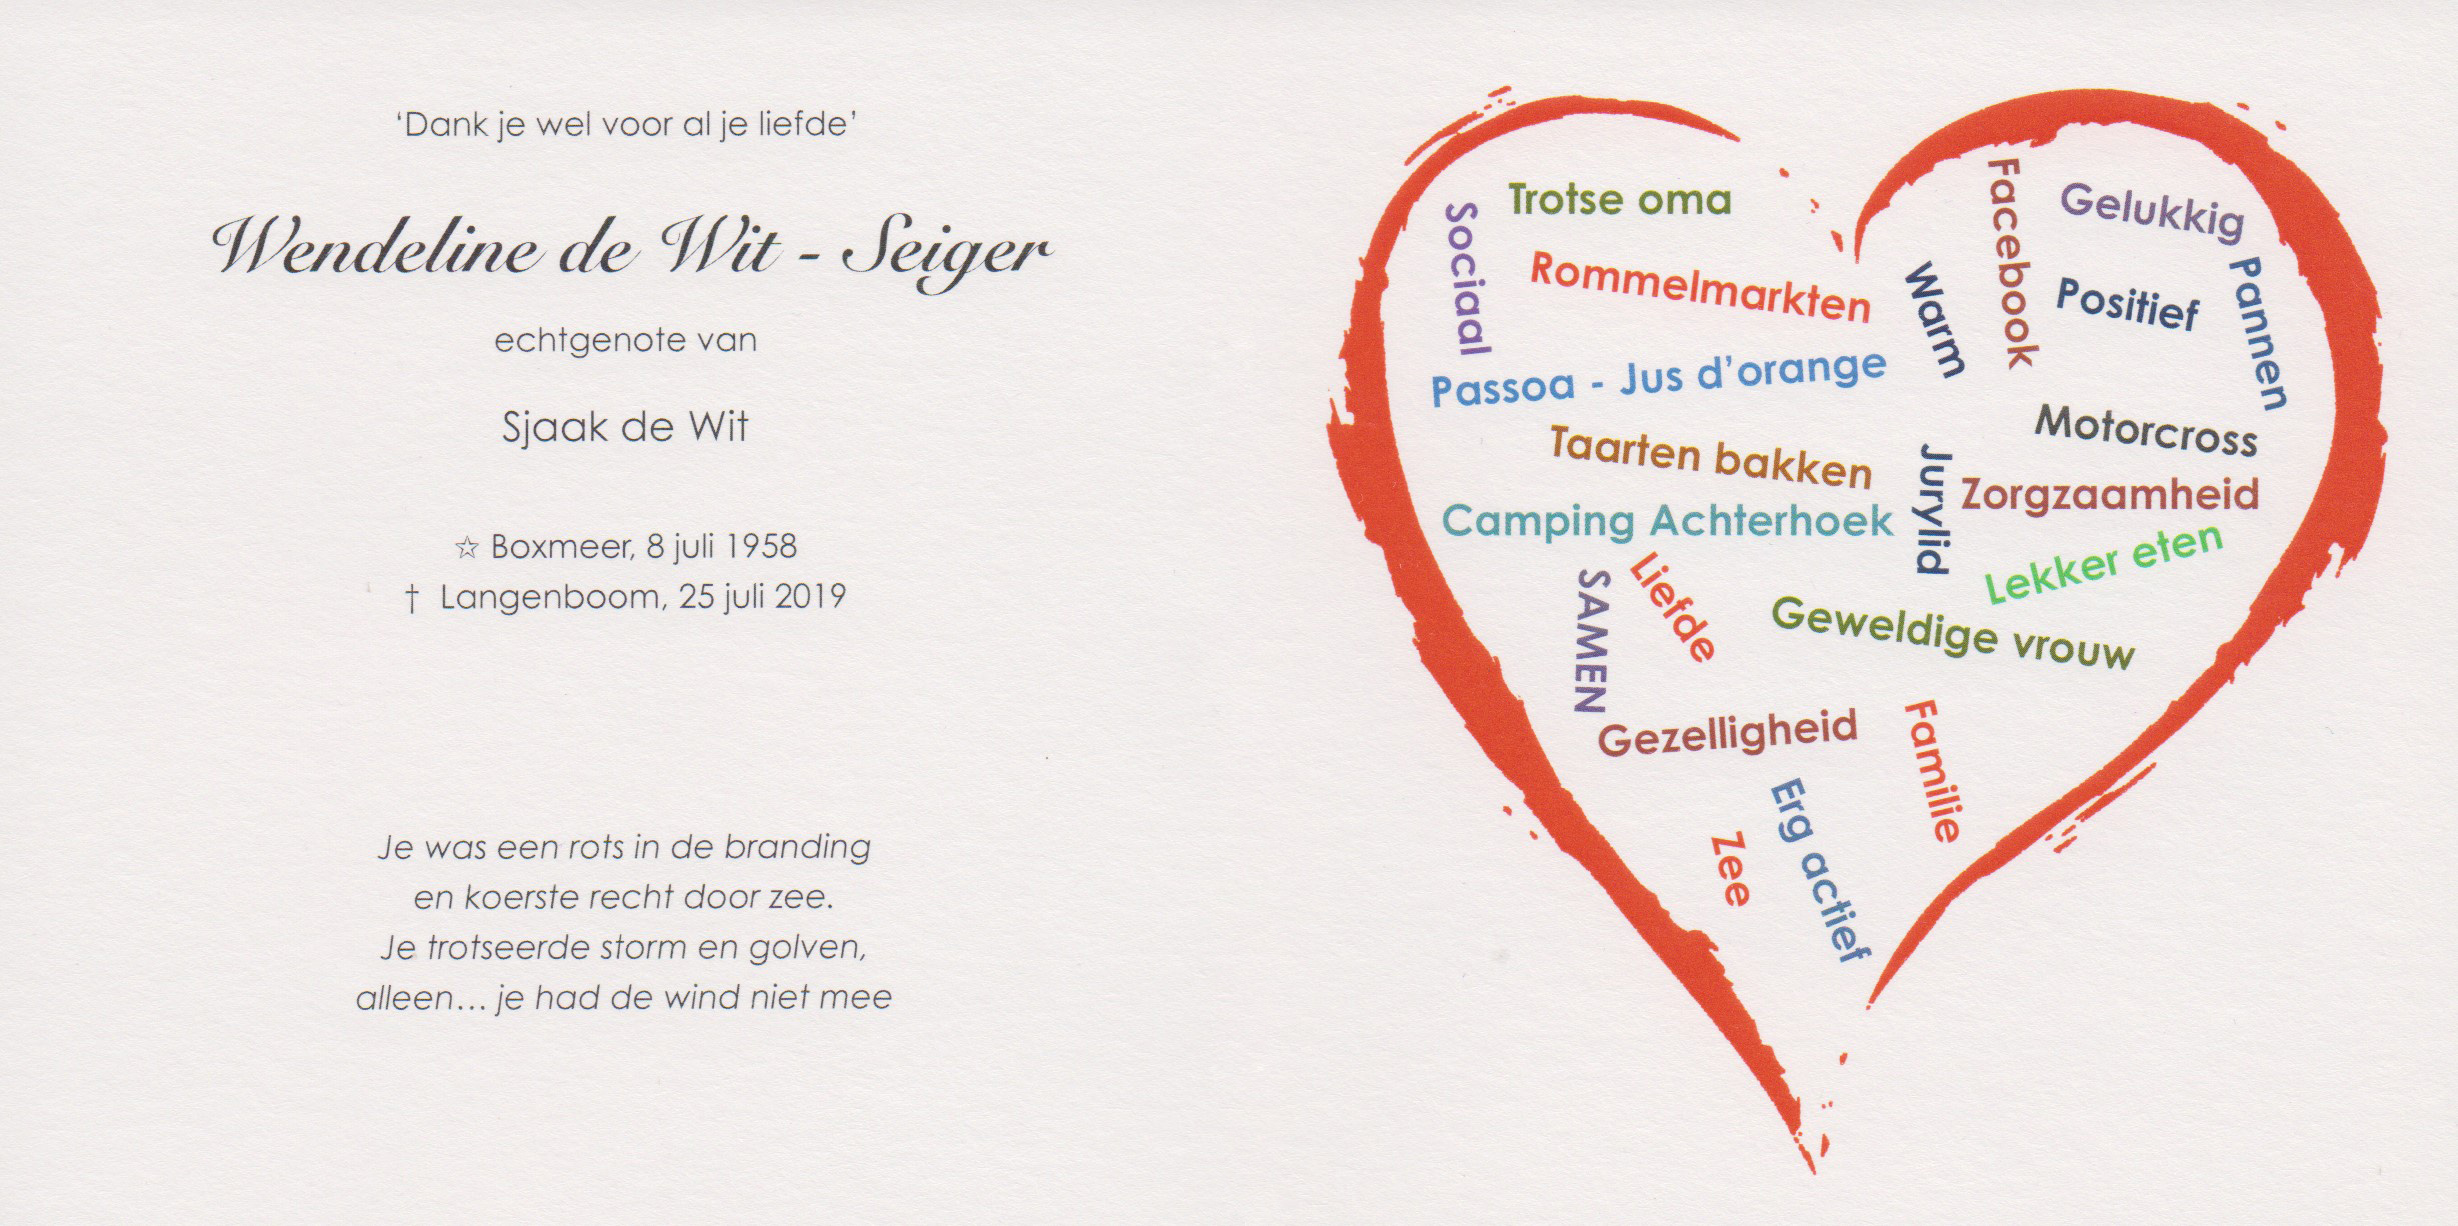 ‘Dank je wel voor al je liefde’
Wendeline de Wit - Seiger
echtgenote van
Sjaak de Wit
☆ Boxmeer, 8 juli 1958
† Langenboom, 25 juli 2019
Je was een rots in de branding
en koerste recht door zee.
Je trotseerde storm en golven,
alleen... je had de wind niet mee
Trotse oma
Sociaal
Rommelmarkten
Facebook
Gelukkig
Warm
Positief
Pannen
Passoa - Jus d’orange
Motorcross
Taarten bakken
Jurylid
Zorgzaamheid
Camping Achterhoek
Lekker eten
SAMEN
Liefde
Geweldige vrouw
Gezelligheid
Familie
Erg actief
Zee